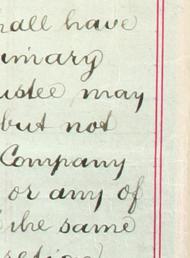 hall have
imary
ustee may
but not
Company
or any of
the same